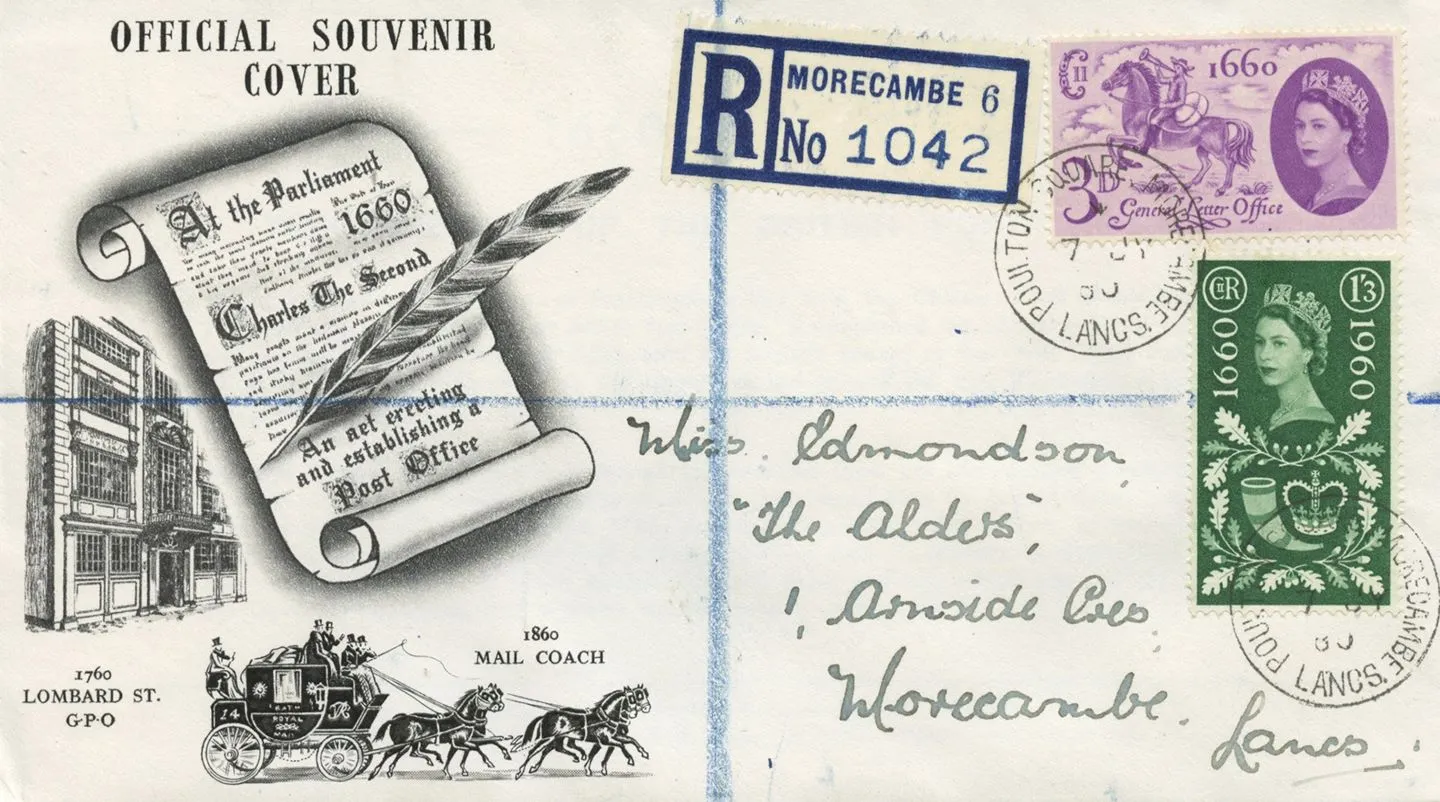 OFFICIAL SOUVENIR
COVER
At the Parliament
1660
Charles The Second
An act erecting
and establishing a
Post Office
1760
LOMBARD ST.
G·P·O
1860
MAIL COACH
14
BATH
ROYAL
MAIL
R
MORECAMBE 6
No 1042
C II
1660
3D
General Letter Office
POULTON SQUARE MORECAMBE
7 JY
60
LANCS.
C II R
1'3
1660
1960
MORECAMBE
60
LANCS.
Miss. Edmondson
"The Alders",
1, Arnside Cres
Morecambe.
Lancs.